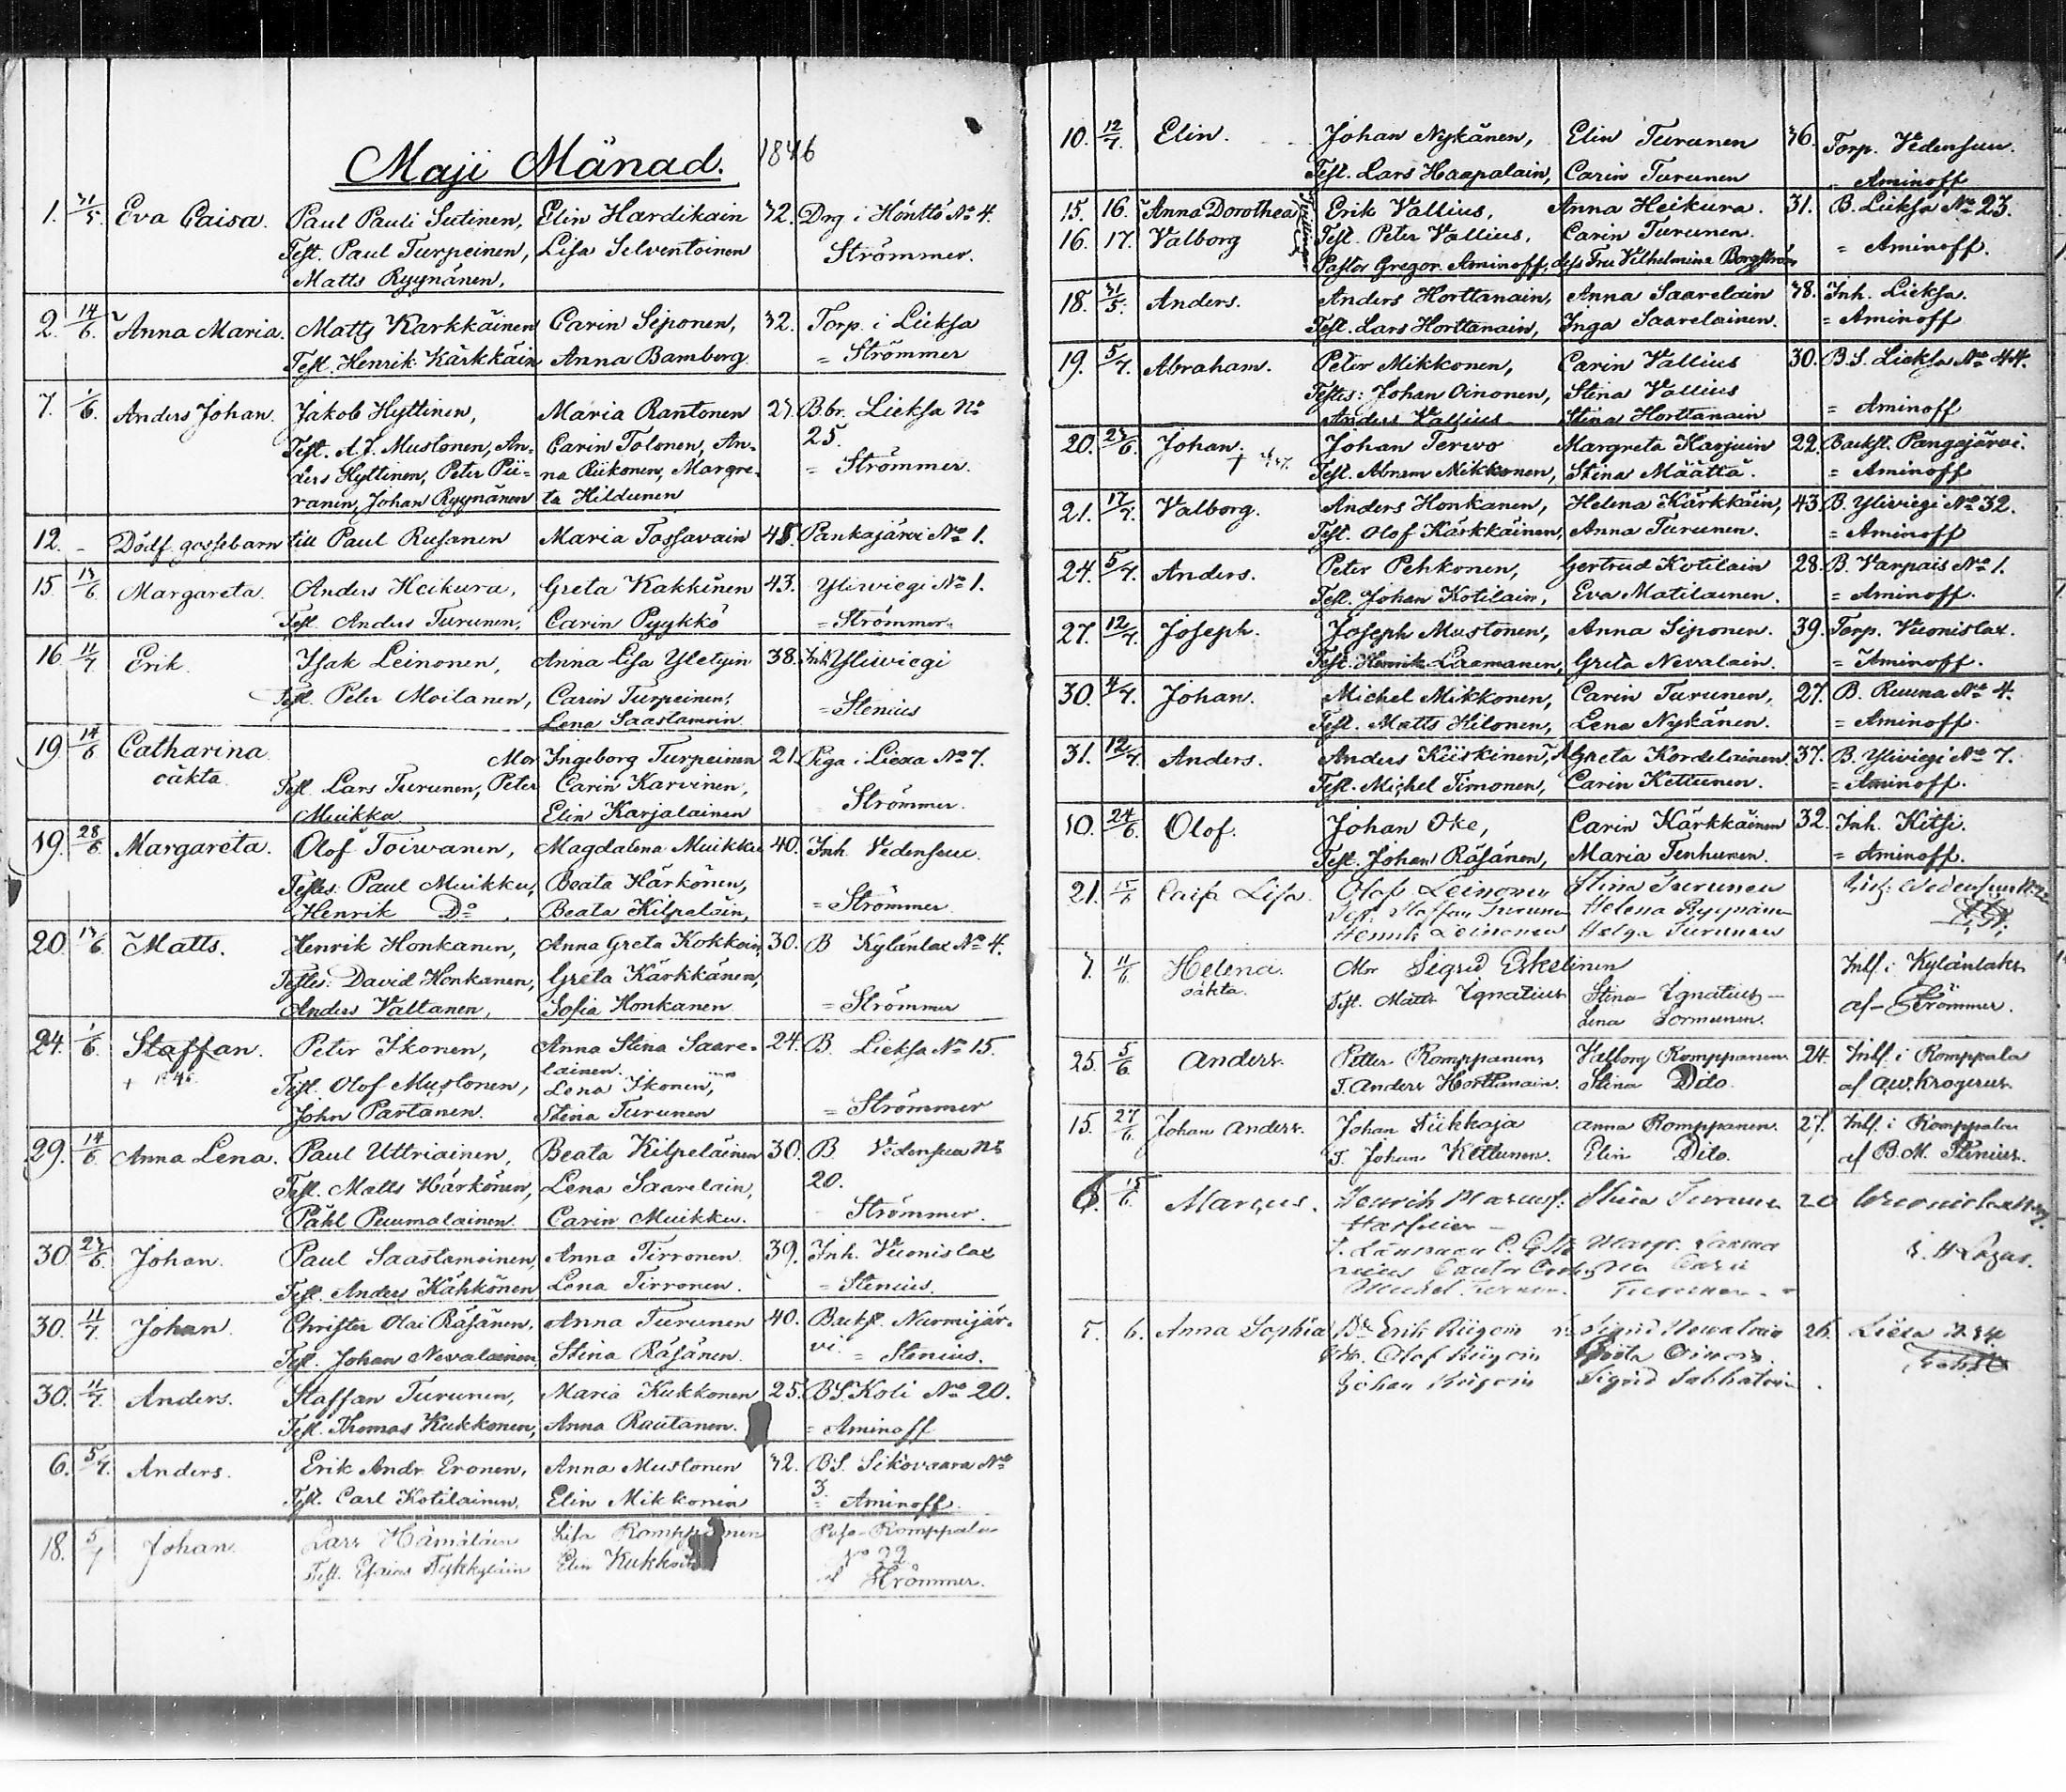 Maji Månad. 1846
1. 31/5. Eva Caisa. Paul Pauli Sutinen, Elin Hardikain 32. Drg i Hönttö No 4.
Test. Paul Turpeinen, Lisa Silventoinen Strömmer.
Matts Ryynänen,
2. 14/6. Anna Maria. Matts Karkkäinen Carin Siponen, 32. Torp. i Lieksa
Test. Henrik Kärkkäin Anna Bamberg = Strömmer
7. 1/6. Anders Johan. Jakob Hyttinen, Maria Rantonen 27. B.br. Lieksa No
Test. A.J. Mustonen, An- Carin Tolonen, An- 25.
ders Hyttinen, Peter Pii- na Riikonen, Margre- = Strömmer.
ranen, Johan Ryynänen ta Hildunen
12. - Dödf. gossebarn till Paul Rusanen Maria Tossavain 48. Pankajärvi No 1.
15 13/6 Margareta. Anders Heikura, Greta Kakkinen 43. Yliwiegi No 1.
Test Anders Turunen, Carin Pyykkö = Strömmer.
16. 11/7 Erik. Isak Leinonen, Anna Lisa Yletyin 38. Inh Yliwiegi
Test. Peter Moilanen, Carin Turpeinen, = Stenius
Lena Saastamoin
19. 14/6 Catharina Mor Ingeborg Turpeinen 21. Piga i Liexa No 7.
oäkta. Test. Lars Turunen, Peter Carin Karvinen, Strömmer.
Muikka Elin Karjalainen
19. 28/6 Margareta. Olof Toiwanen, Magdalena Muikku 40. Inh. Vedensuu.
Testes: Paul Muikku, Beata Härkönen,
Henrik Do. Beata Kilpeläin, = Strömmer
20 13/6 Matts. Henrik Honkanen, Anna Greta Kokkoin, 30. B Kylänlax No 4.
Testes: David Honkanen, Greta Kärkkänen,
Anders Valtanen, Sofia Honkanen = Strömmer
24. 1/6. Staffan. Peter Ikonen, Anna Stina Saare- 24. B. Lieksa No 15.
lainen.
+ 1846. Test. Olof Mustonen, Lena Ikonen,
John Partanen. Stina Turunen = Strömmer
29. 14/6 Anna Lena. Paul Uttriainen, Beata Kilpeläinen 30. B. Vedensuu No
Test. Matts Härkönen, Lena Saarelain, 20.
Påhl Puumalainen Carin Muikku. Strömmer.
30 23/6 Johan. Paul Saastamoinen, Anna Tirronen. 39. Inh. Vuonislax
Test. Anders Kähkönen Lena Tirronen. = Stenius.
30. 11/7 Johan. Christer Olai Räsänen, Anna Turunen 40. Backst. Nurmijär-
Test. Johan Nevalainen, Stina Räsänen. vi. = Stenius.
30. 11/7 Anders. Staffan Turunen, Maria Kukkonen 25. B.S. Koli No 20.
Test. Thomas Kukkonen, Anna Rautanen. = Aminoff
6. 5/7. Anders. Erik Andr. Eronen, Anna Mustonen 32. B.S. Sikovaara No
Test. Carl Kotilainen, Elin Mikkonen 3. = Aminoff.
18. 5/7 Johan. Lars Hämäläin Lisa Romppanen Romppala
Test. Elin No 22
Strömmer.
10. 12/7. Elin. Johan Nykänen, Elin Turunen 36. Torp. Vedensuu.
Test. Lars Haapalain, Carin Turunen Aminoff
15. 16. Anna Dorothea Erik Vallius, Anna Heikura. 31. B. Lieksa No 23.
16. 17. Valborg Test. Peter Vallius, Carin Turunen. = Aminoff.
Pastor Gregor. Aminoff, dess Fru Vilhelmina Borgström
18. 31/5. Anders. Anders Horttanain, Anna Saarelain 38. Inh. Lieksa.
Test. Lars Horttanain, Inga Saarelainen. = Aminoff
19. 5/7. Abraham. Peter Mikkonen, Carin Vallius 30. B.S. Lieksa No 44.
Testes: Johan Oinonen, Stina Vallius
Anders Vallius Stina Horttanain = Aminoff
20. 23/6. Johan. Johan Terwo Margreta Harjuin 22. Backst. Pangajärvi.
Test. Abram Mikkonen, Stina Määttä. = Aminoff
21. 12/7. Valborg. Anders Honkanen, Helena Kärkkäin, 43. B. Yliwiegi No 32.
Test. Olof Kärkkäinen, Anna Turunen. = Aminoff
24. 5/7. Anders. Peter Pehkonen, Gertrud Kotilain 28. B. Varpais No 1.
Test. Johan Kotilain, Eva Matilainen. = Aminoff.
27. 12/7. Joseph. Joseph Mustonen, Anna Siponen. 39. Torp. Vuonislax.
Test. Henrik Laamanen, Greta Nevalain. = Aminoff.
30. 4/7. Johan. Michel Mikkonen, Carin Turunen, 27. B. Ruuna No 4.
Test. Matts Hilonen, Lena Nykänen. = Aminoff.
31. 12/7. Anders. Anders Kiiskinen, Greta Kordelainen. 37. B. Yliviegi No 7.
Test. Michel Timonen, Carin Kettunen. = Aminoff.
10. 24/6. Olof. Johan Oke, Carin Kärkkäinen 32. Inh. Kitsi.
Test. Johan Räsänen, Maria Tenhunen. = Aminoff.
21. 15/6 Caisa Lisa. Olof Leinonen Stina Turunen
Test. Staffan Turunen Helena Ryynänen
Henrik Leinonen Helga Turunen
7. 11/6 Helena. Mor Sigrid Eskelinen Inh. i Kylänlaks
oäkta. Test. Matts Ignatius Stina Ignatius
Lena Sormunen. af Strömmer.
25. 5/6 Anders. Petter Romppanen, Valborg Romppanen 24. Inh. i Romppala
T. Anders Horttanain. Stina Dito. af Aw. Krogerus
15. 27/6. Johan Anders. Johan Anna Romppanen. 27. Inh. i Romppala
T. Johan Kettunen. Elin Dito. af B.M. Stenius.
6. 15/6. Marcus. Henrich Marcus. Stina Turunen 20
Michel
7. 6. Anna Sophia Erik Sigrid Nevalain 26. Liexa
Olof
Johan Sigrid